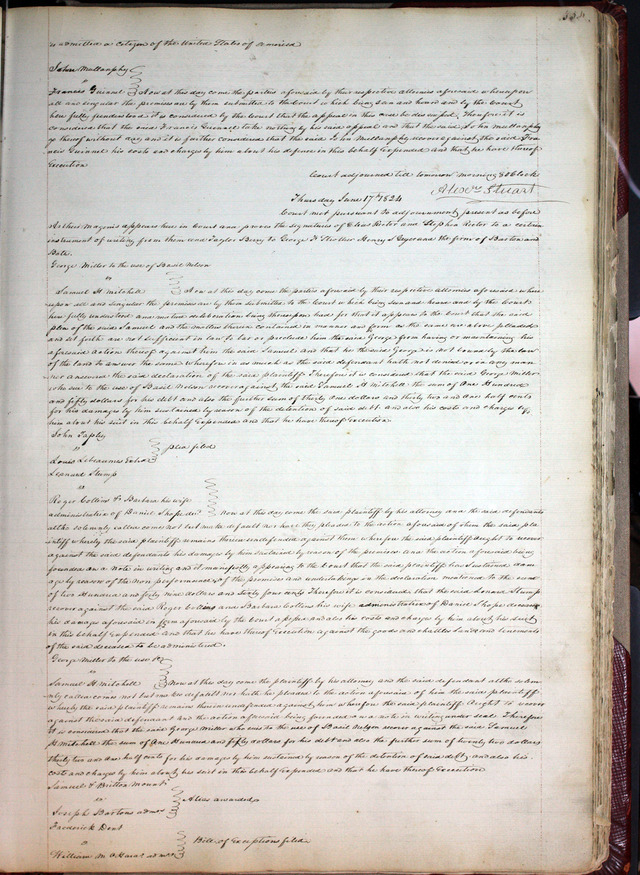 is admitted a citizen of the United States of America
John Mullanphy
vs
Francis Guinnel Now at this day come the parties aforesaid by their respective attornies aforesaid whereupon
all and singular the premises are by them submitted to the Court which being seen and heard and by the Court
here fully understood it is considered by the Court that the appeal in this case be dismissed, Therefore it is
considered that the said Francis Guinnel take nothing by his said appeal and that the said John Mullanphy
go thereof without day and it is further considered that the said John Mullanphy recover against the said Fran
cis Guinnel his costs and charges by him about his defence in this behalf Expended and that he have thereof
Execution
Court adjourned till tomorrow morning 8 oClock
Alexr Stuart
Thursday June 17th 1824
Court met pursuant to adjournment, present as before
Arthur Magenis appears here in Court and proves the signatures of Elias Rector and Stephen Rector to a certain
instrument of writing from them and Taylor Berry to George F Strother Henry S Geyer and the firm of Barton and
Bates
George Miller to the use of Basil Nelson
vs
Samuel H Mitchell Now at this day come the parties aforesaid by their respective attornies aforesaid where
upon all and singular the premises are by them submitted to the Court which being seen and heard and by the Court
here fully understood and mature deliberation being thereupon had for that it appears to the Court that the said
plea of the said Samuel and the matters therein contained in manner and form as the same are above pleaded
and set forth are not sufficient in law to bar or preclude him the said George from having or maintaining his
aforesaid action thereof against him the said Samuel and that he the said George is not bound by the law
of the land to answer the same wherefore in as much as the said defendant hath not denied or in any man
ner answered the said declaration of the said plaintiff Therefore it is considered that the said George Miller
who sues to the use of Basil Nelson recover against the said Samuel H Mitchell the sum of One Hundred
and fifty dollars for his debt and also the further sum of thirty one dollars and thirty two and one half cents
for his damages by him sustained by reason of the detention of said debt and also his costs and charges by
him about his suit in this behalf Expended and that he have thereof Execution
John Tapley
vs plea filed
Louis Lebeaumes Exers
Leonard Stump
vs
Roger Collins & Barbara his wife
administration of Daniel Shope decd Now at this day come the said plaintiff by his attorney and the said defendants
altho solemnly called come not but make default nor have they pleaded to the action aforesaid of him the said pla
intiff whereby the said plaintiff remains therein undefended against them wherefore the said plaintiff ought to recover
against the said defendants his damages by him sustained by reason of the premises and the action aforesaid being
founded on a note in writing and it manifestly appearing to the Court that the said plaintiff has sustained dam
ages by reason of the non performance of the promises and undertakings in the declaration mentioned to the sum
of two Hundred and forty nine dollars and sixty four cents Therefore it is considered that the said Leonard Stump
recover against the said Roger Collins and Barbara Collins his wife administration of Daniel Shope deceased
his damages aforesaid in form aforesaid by the Court and also his costs and charges by him about his suit
in this behalf Expended and that he have thereof Execution against the goods and chattles lands and tenements
of the said deceased to be administered.
George Miller to the use &c
vs
Samuel H Mitchell Now at this day come the plaintiff by his attorney and the said defendant altho solem
nly called comes not but makes default nor hath he pleaded to the action aforesaid of him the said plaintiff
whereby the said plaintiff remains therein undefended against him wherefore the said plaintiff Aught to recover
against the said defendant and the action aforesaid being founded on a note in writing under seal Therefore
it is considered that the said George Miller who sues to the use of Basil Nelson recover against the said Samuel
H Mitchell the sum of One Hundred and fifty dollars for his debt and also the further sum of twenty two dollars
thirty two and one half cents for his damages by him sustained by reason of the detention of said debt and also his
costs and charges by him about his suit in this behalf Expended and that he have thereof Execution
Samuel & Britton
vs Alias awarded
Joseph Bartons admr
Frederick Dent
vs Bill of Exceptions filed
William M OHaras admr